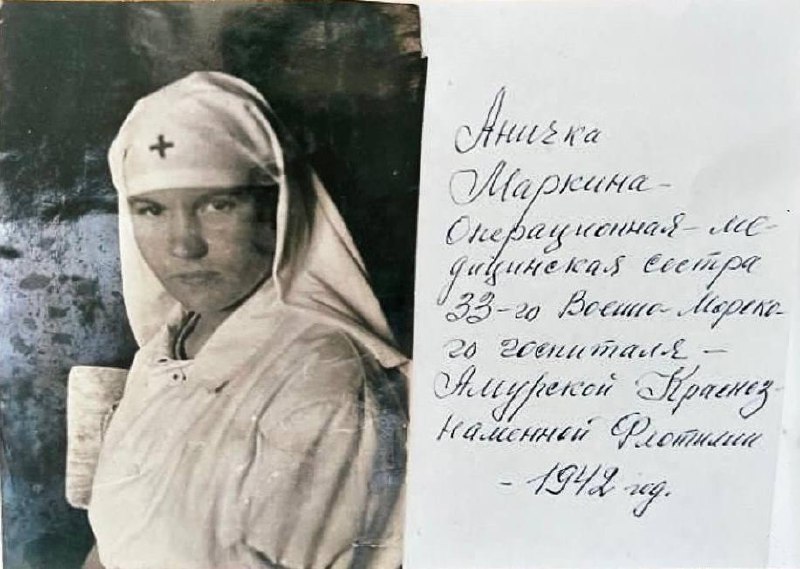 Аничка
Маркина-
Операционная- ме-
дицинская сестра
33-го Военно-Морско-
го госпиталя -
Амурской Краснoз-
наменной Флотилии
- 1942 год.